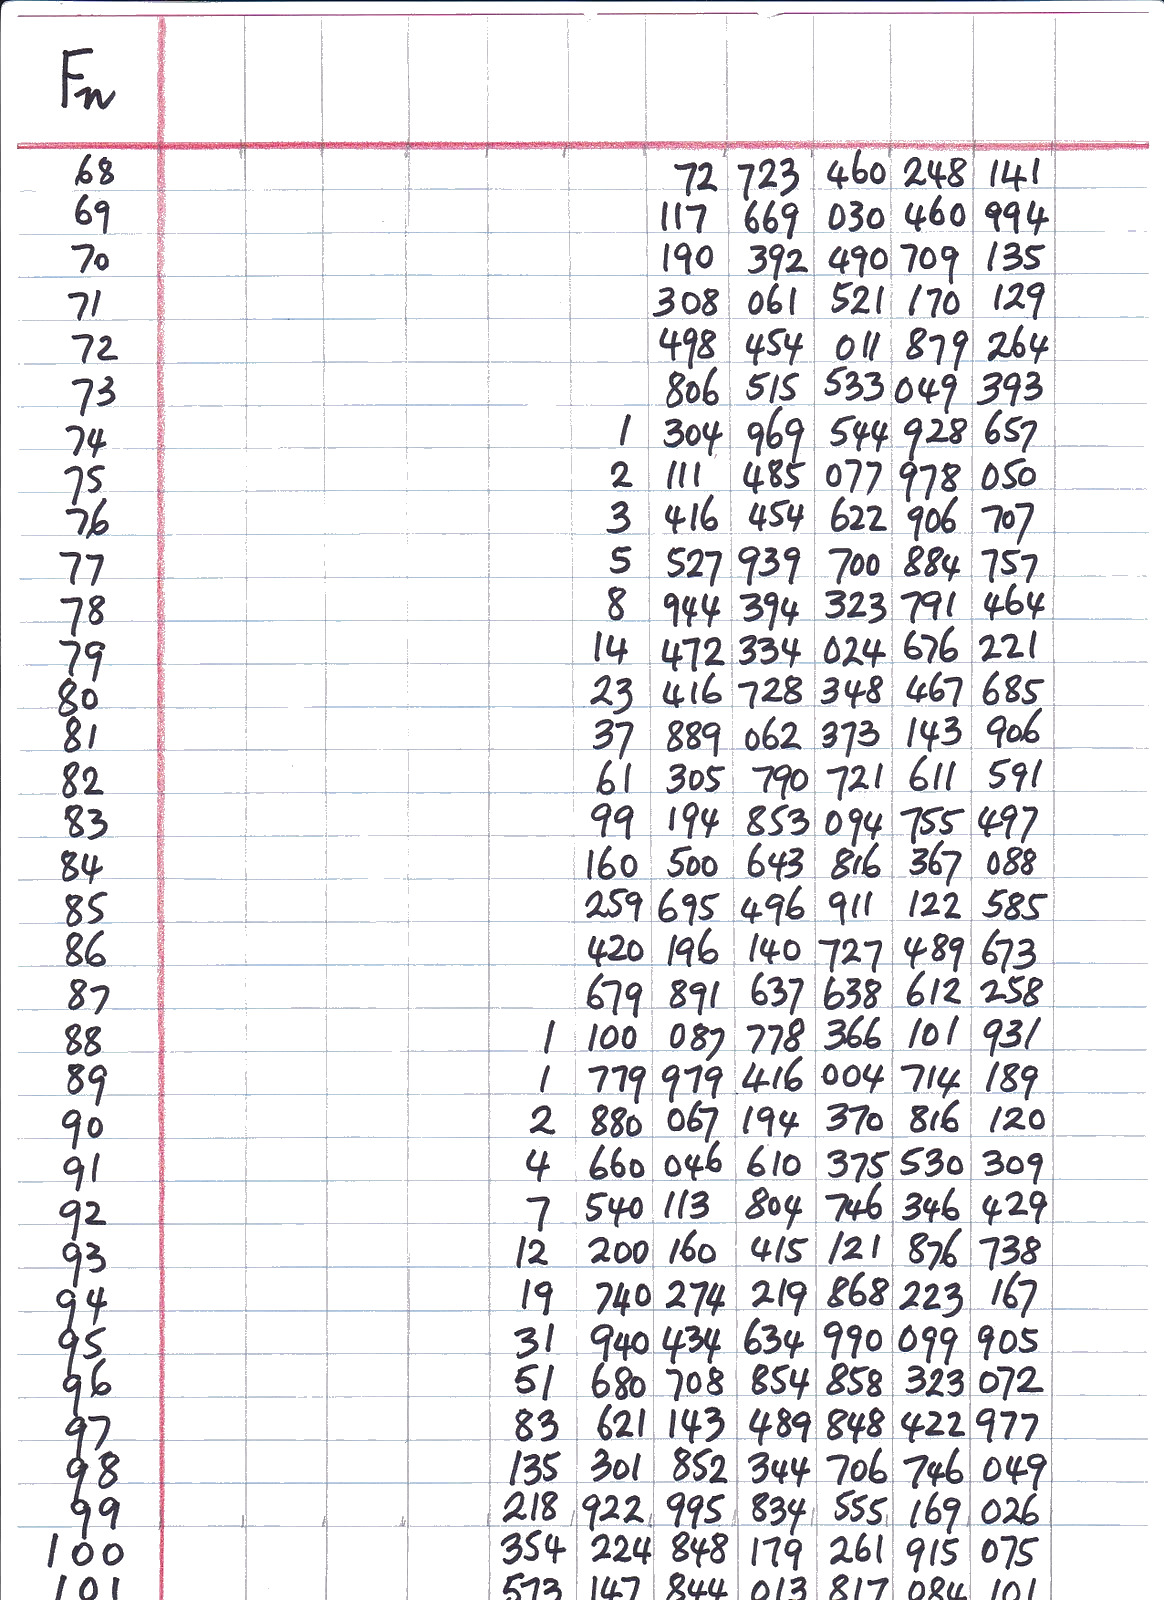 Fn
68 72 723 460 248 141
69 117 669 030 460 994
70 190 392 490 709 135
71 308 061 521 170 129
72 498 454 011 879 264
73 806 515 533 049 393
74 1 304 969 544 928 657
75 2 111 485 077 978 050
76 3 416 454 622 906 707
77 5 527 939 700 884 757
78 8 944 394 323 791 464
79 14 472 334 024 676 221
80 23 416 728 348 467 685
81 37 889 062 373 143 906
82 61 305 790 721 611 591
83 99 194 853 094 755 497
84 160 500 643 816 367 088
85 259 695 496 911 122 585
86 420 196 140 727 489 673
87 679 891 637 638 612 258
88 1 100 087 778 366 101 931
89 1 779 979 416 004 714 189
90 2 880 067 194 370 816 120
91 4 660 046 610 375 530 309
92 7 540 113 804 746 346 429
93 12 200 160 415 121 876 738
94 19 740 274 219 868 223 167
95 31 940 434 634 990 099 905
96 51 680 708 854 858 323 072
97 83 621 143 489 848 422 977
98 135 301 852 344 706 746 049
99 218 922 995 834 555 169 026
100 354 224 848 179 261 915 075
101 573 147 844 013 817 084 101